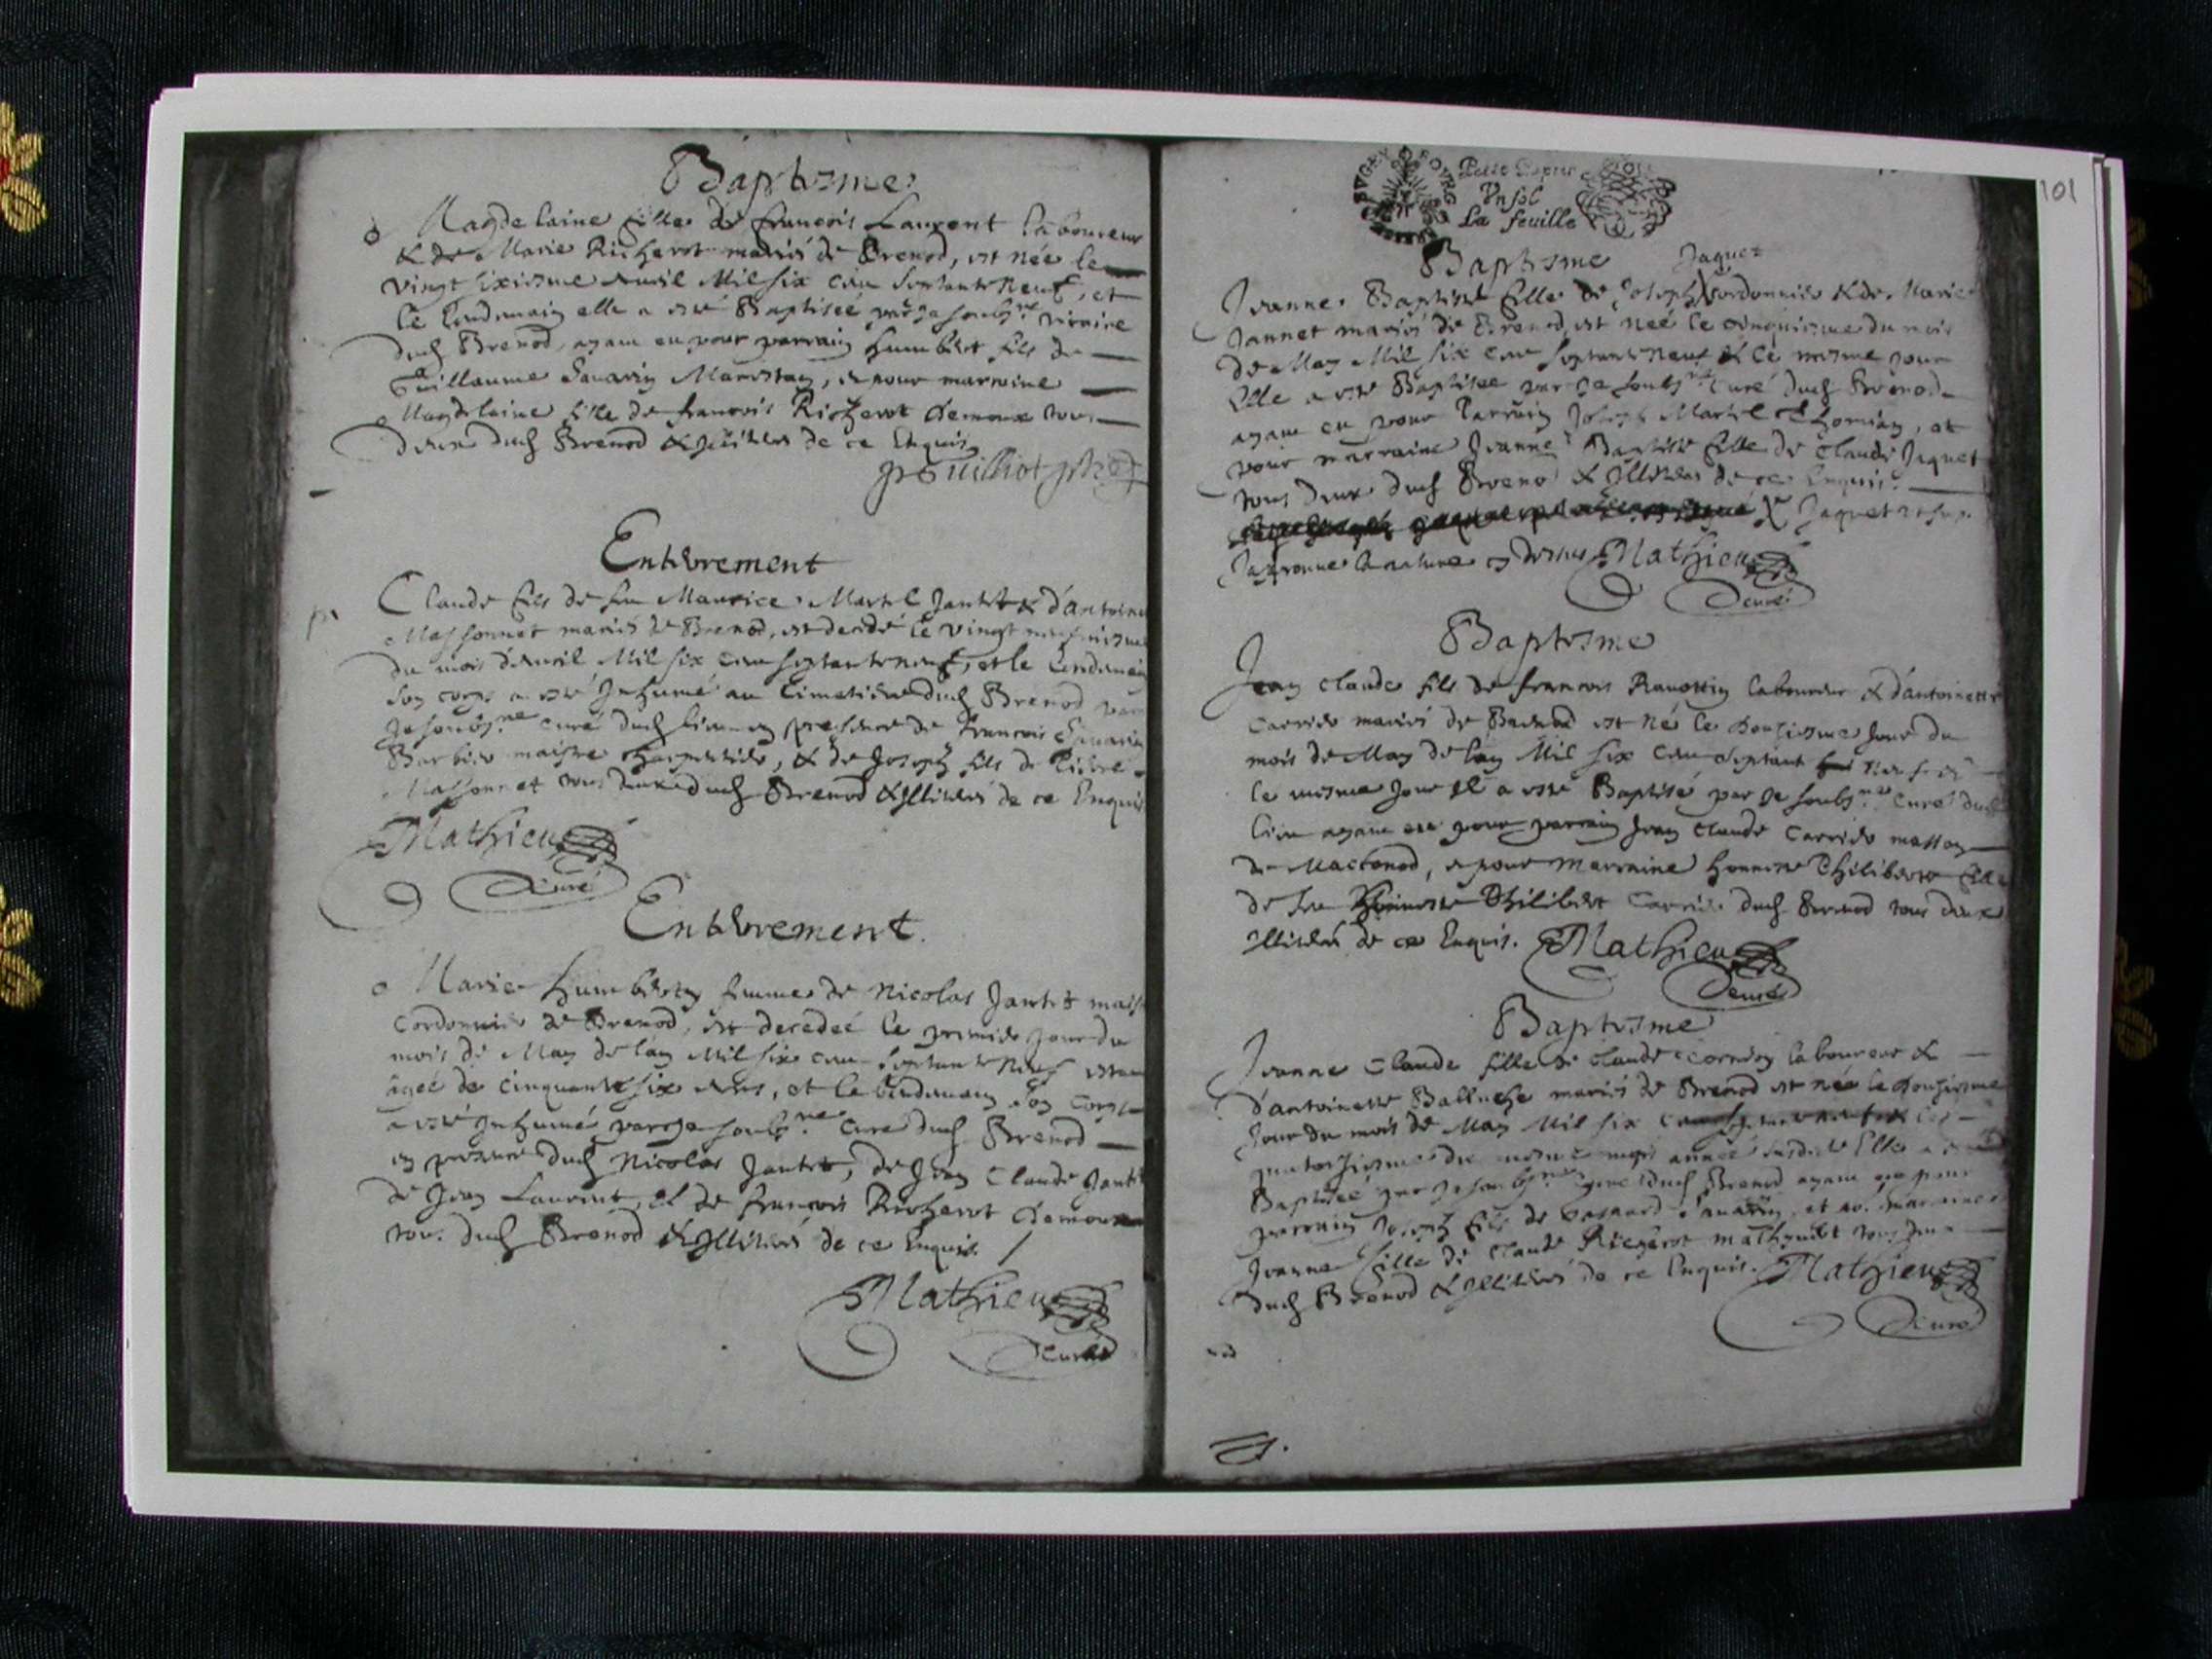 Baptesme
Magdelaine fille de francois Laurent laboureur
& de Marie Richerot mariés de Brenod, est née le
vingt sixiesme Avril Mil six cen septante neuf, et
le lendemain elle a esté Baptisée par je soubs.ne vicaire
dud Brenod, ayant eu pour parrain humbert fils de
Guillaume Savarin, et pour marraine
Magdelaine fille de francois Richerot tous
deux dud Brenod & illiteres de ce Enquis
Enterrement
Claude fils de feu Maurice Martel Jantet & d'antoine
Massonnet mariés de Brenod, est decedé le vingt
du mois d'Avril Mil six cen septante neuf, et le lendemain
son corps a esté Inhumé au Cimetiere dud Brenod par
je soubs.ne Curé dud lieu en presence de francois Savarin
Barbier maistre charpentier, & de Joseph fils de
Massonnet tous deux dud Brenod & Illiteres de ce Enquis
Mathieu
Curé
Enterrement.
Marie humbert femme de Nicolas Jantet
Cordonnier de Brenod, est decedeé le premier Jour du
mois de May de lan Mil six cen septante neuf
âgeé de Cinquante six Ans, et le lendemain son Corps
a esté inhumé par je soubs.ne Curé dud Brenod
en presence dud Nicolas Jantet, de Jean Claude Jantet
de Jean Laurent, et de francois Richerot
tous dud Brenod & Illiteres de ce Enquis.
Mathieu
Curé
101
BVGEY BOVRG
Petit Papier
Vn sol
La feuille
Baptesme
Jaquet
Jeanne Baptiste fille de Joseph Cordonnier & de Marie
Jannet mariés de Brenod, est neé le cinquiesme du mois
de May Mil six cen septante neuf & le mesme jour
Elle a esté Baptisee par je soubs.ne Curé dud Brenod
ayant eu pour Parrain Joseph Martel, et
pour marraine Jeanne Baptiste fille de Claude Jaquet
tous deux dud Brenod & Illiteres de ce Enquis.
Jaquet
Mathieu
Curé
Baptesme
Jean Claude fils de francois Ravottin laboureur & d'antoinette
Carrier mariés de Brenod est né le Jour du
mois de May de lan Mil six cen septante neuf &
le mesme Jour Il a esté Baptisé par je soubs.ne Curé dud
lieu ayant eu pour parrain Jean Claude Carrier masson
de Maconod, et pour Marraine honneste Philiberte fille
de feu honneste Philibert Carrier dud Brenod tous deux
Illiteres de ce Enquis. Mathieu
Curé
Baptesme
Jeanne Claude fille de Claude laboureur &
d'antoinette Balluche mariés de Brenod est née le
Jour du mois de May Mil six cen septante neuf & le
quatorziesme du mesme mois année susdite Elle a esté
Baptiseé par je soubs.ne Curé dud Brenod ayant eu pour
parrain Joseph fils de Savarin, et po. marraine
Jeanne fille de Claude Richerot tous deux
dud Brenod & Illiteres de ce Enquis. Mathieu
Curé